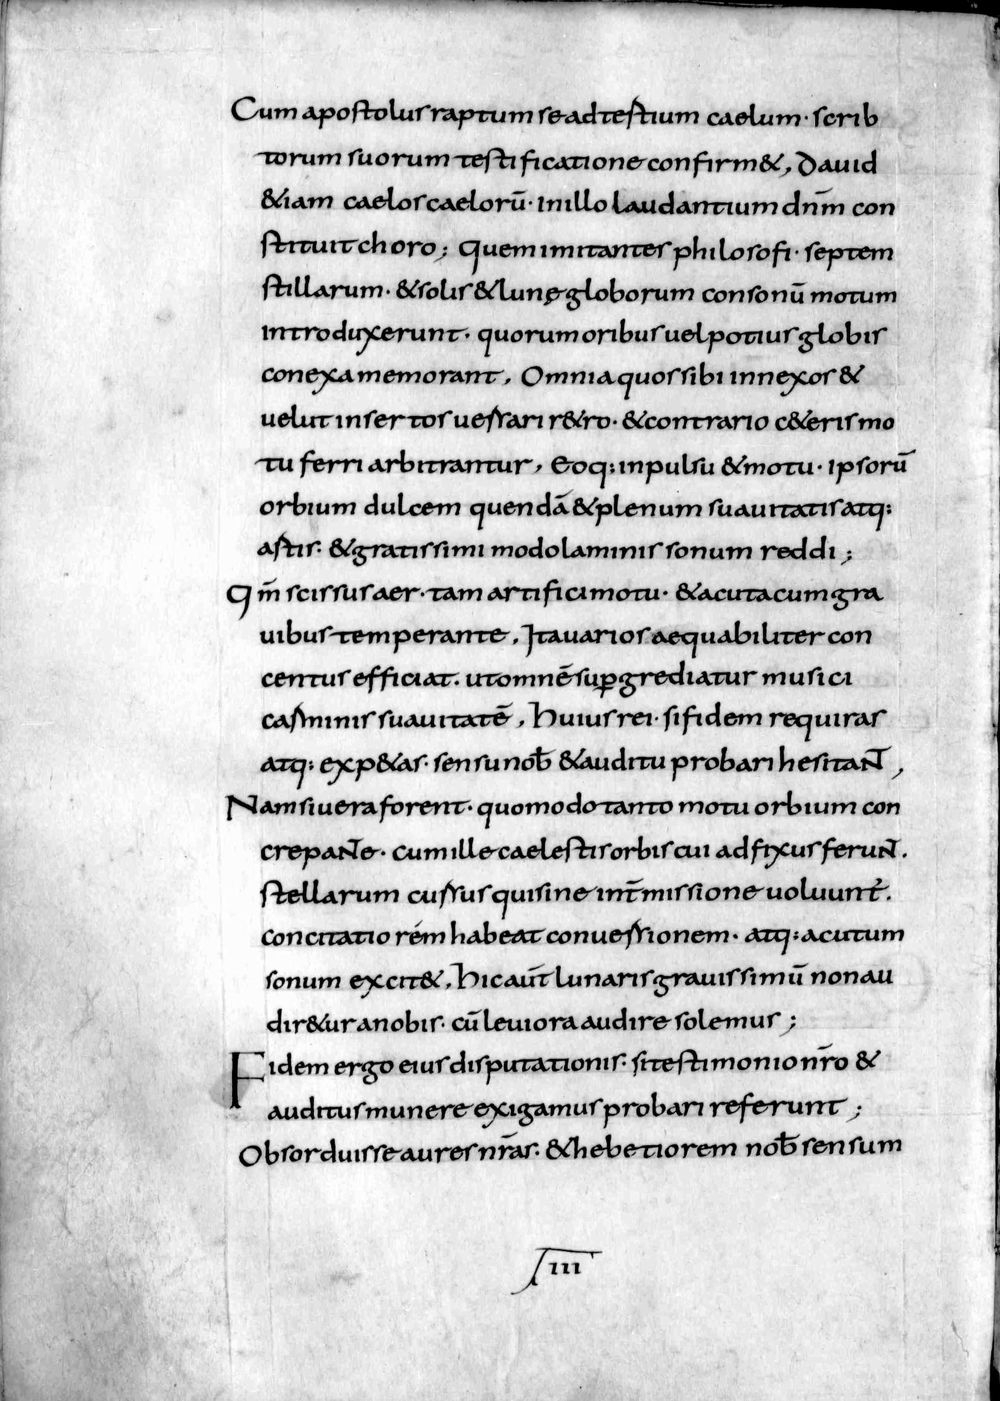 Cum apostolus raptum se ad testium caelum · scrib
torum suorum testificatione confirm&, David
&iam caelos caelorū · in illo laudantium dnm̄ con
stituit choro; quem imitantes philosofi · septem
stillarum · & solis & lunę globorum consonū motum
introduxerunt · quorum oribus vel potius globis
conexa memorant, Omnia quos sibi innexos &
velut insertos versari r&ro · & contrario c&eris mo
tu ferri arbitrantur, Eoq: inpulsu & motu · ipsorū
orbium dulcem quendā & plenum suavitatis atq:
astis · & gratissimi modolaminis sonum reddi;
Qm̄ scissus aer · tam artifici motu · & acuta cum gra
vibus temperante, Ita varios aequabiliter con
centus efficiat · ut omnē sup̱grediatur musici
carminis suavitatē, Huius rei · si fidem requiras
atq: exp&as · sensu nob̄ & auditu probari hesitanT̄,
Nam si vera forent · quomodo tanto motu orbium con
crepaNTe · cum ille caelestis orbis cui adfixus feruNT ·
stellarum cursus qui sine int̄missione voluunt̄ ·
concitatiorém habeat conversionem · atq: acutum
sonum excit&, Hic aūt lunaris gravissimū non au
dir&ur a nobis · cū leviora audire solemus;
Fidem ergo eius disputationis · si testimonio nr̄o &
auditus munere exigamus probari referunt;
Obsorduisse aures nr̄as · & hebetiorem nob̄ sensum
iii